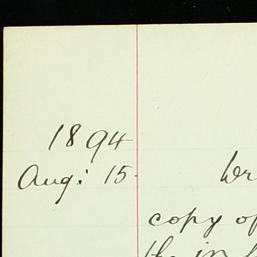 1894
Aug: 15
copy of
the in